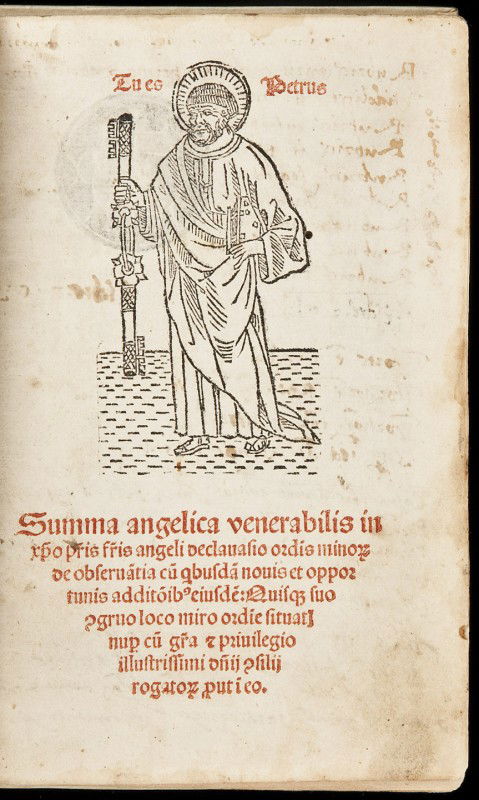 Tu es Petrus
Summa angelica venerabilis in
xp̄o pr̄is fr̄is angeli de clauasio ordīs minoꝝ
de obseruātia cū qͥbusdā nouis et oppor
tunis additōibꝰ eiusdē: Quisqꝫ suo
ꝯgruo loco miro ordīe situatꝭ
nuꝑ cū gr̄a ⁊ priuilegio
illustrissimi dn̄ij ꝯsilij
rogatoꝝ ꝓut ī eo.